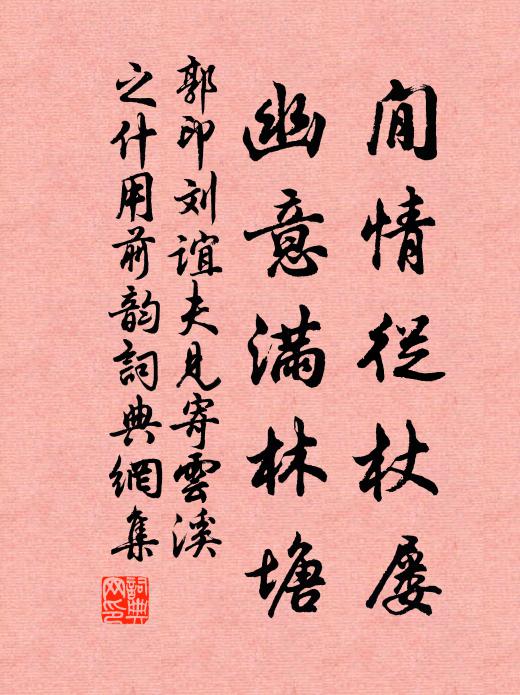 閒情從杖屨
幽意滿林塘
郭印刘誼夫見寄雲溪
之什用前韵詞典網集
詞典网印